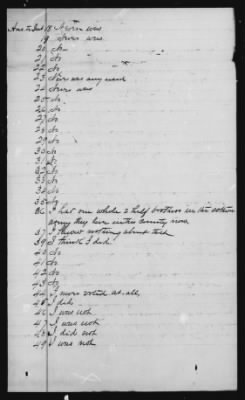 Ans to Int 18 Never was
19 Never was
20 No
21 No
22 No
23 Nor was any used
24 Never was
25 No
26 No
27 No
28 No
29 No
30 No
31 No
32 No
33 No
34 No
35 No
36 I had one whole 2 half brothers in the
army they live in this county now
37 I know nothing about this
39 I think I did
40 No
41 No
42 No
43 No
44 I never voted at all,
45 I did
46 I was not
47 I was not
48 I did not
49 I was not